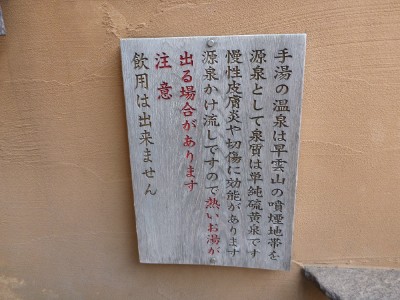 手湯の温泉は早雲山の噴煙地帯を
源泉として泉質は単純硫黄泉です
慢性皮膚炎や切傷に効能があります
源泉かけ流しですので熱いお湯が
出る場合があります
注意
飲用は出来ません